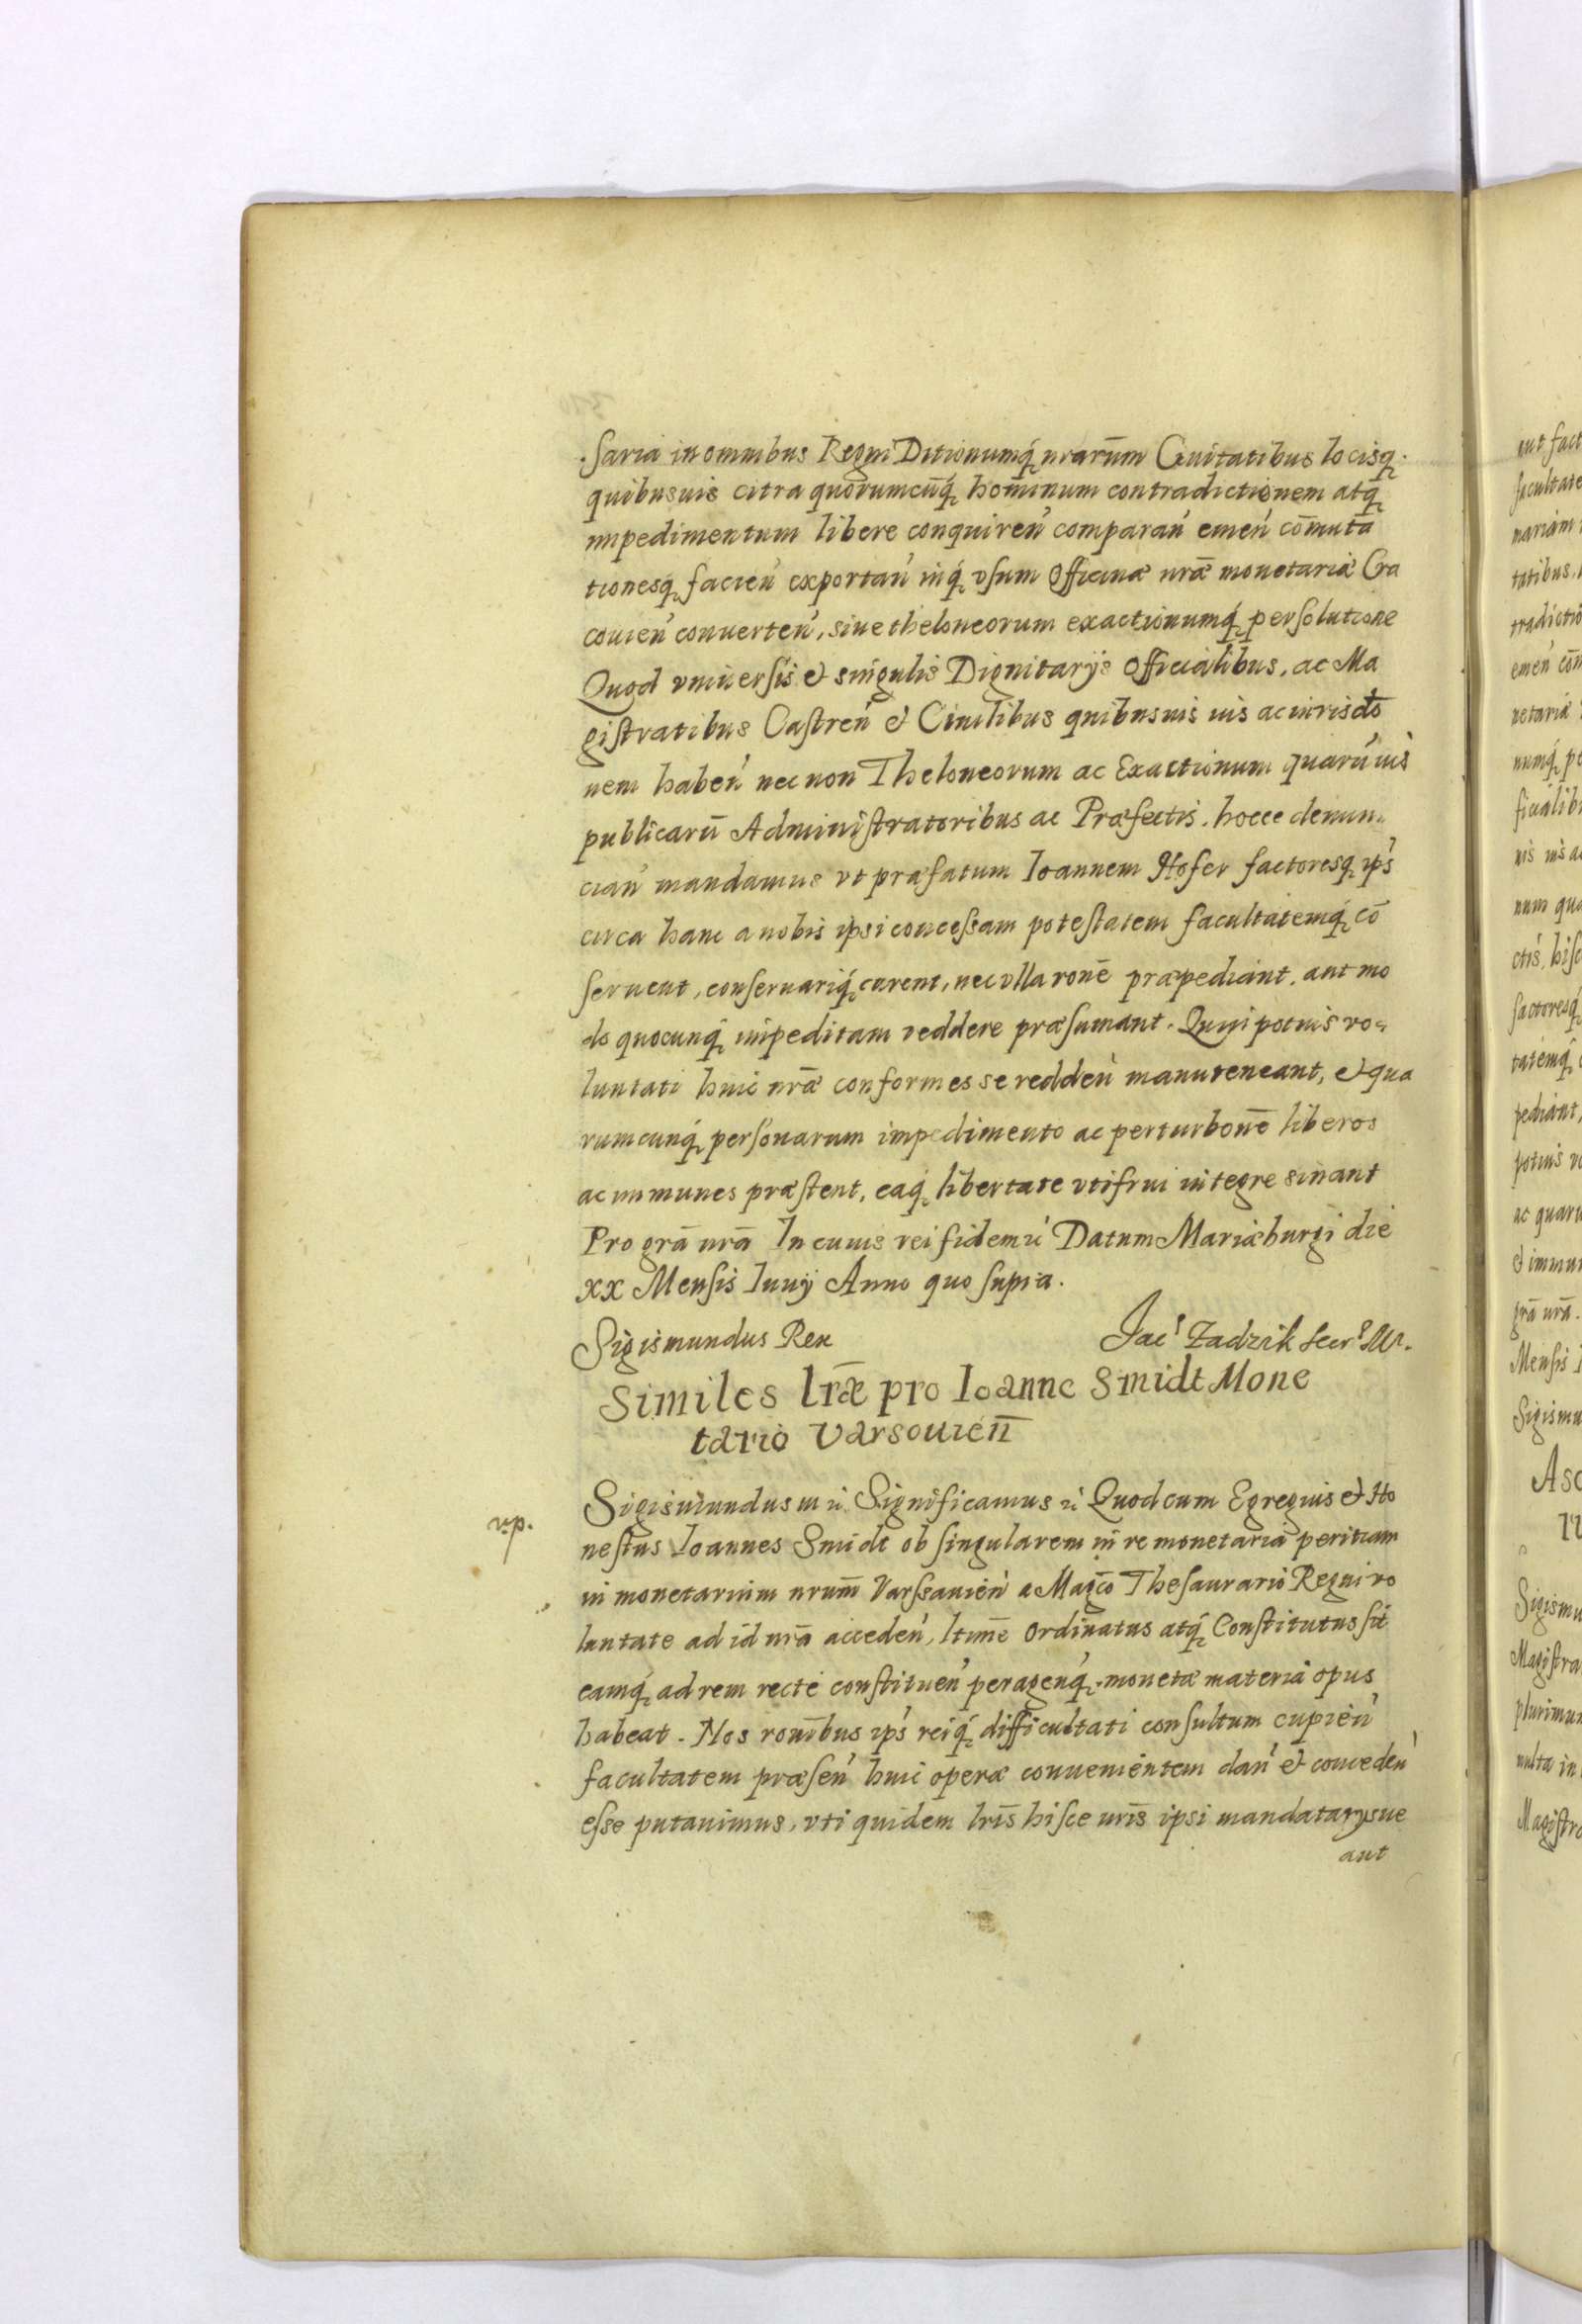 saria in omnibus Regni Ditionumq́ nrarūm Ciuitatibus locisq
quibusuis citra quorumcūq́ hominum contradictionem atq́
impedimentum libere conquireń comparań emeń cōmuta
tionesq́ facień exportań inq́ vsum Officinæ nrǣ monetariæ Cra
couień conuerteń, siue theloneorum exactionumq́ persolutione
Quod vniuersis et singulis Dignitarijs Officialibus, ac Ma
gistratibus Castreń et Ciuilibus quibusuis ius ac iurisdto
nem habeń nec non Theloneorum ac Exactionum quarúuis
publicarū Administratoribus ac Præfectis, hocce denun
ciań mandamus vt præfatum Ioannem Hofer factoresq́ ips̓
circa hanc a nobis ipsi concessam potestatem facultatemq́ cō
seruent, conseruariq́ curent, nec vlla ronē præpediant, aut mo
do quocunq́ impeditam reddere præsumant. Quin potuis vo
luntati huic nrǣ conformes se reddeń manuteneant, et qua
rumcunq́ personarum impedimento ac perturbonē liberos
ac immunes præstent, eaq́ libertate vtifrui integre sinant
Pro grā nrā In cuius rei fidem ń Datum Mariæburgi die
xx Mensis Iunÿ Anno quo supra.
Sigismundus Rex
Jac⁹ Zadzik Secr⁹ Mr.
Similes lrǣ pro Ioanne Smidt Mone
tario Varsouień
Sigismundus III ń Significamus ń Quod cum Egregius et Ho
nestus Ioannes Smidt ob singularem in re monetaria peritiam
in monetarium nrum̄ Varssauień a Magc̄o Thesaurario Regni vo
luntate ad id nrā accedeń, ltimē ordinatus atq́ Constitutus sit
eamq́ ad rem recte constitueń peragenq́ monetæ materia opus
habeat. Nos ronibus ips̓ reiq́ difficultati consultum cupień
facultatem præseń huic operæ conuenientem dań et concedeń
esse putauimus, vti quidem lris̄ hisce nris̄ ipsi mandatarysue
aut